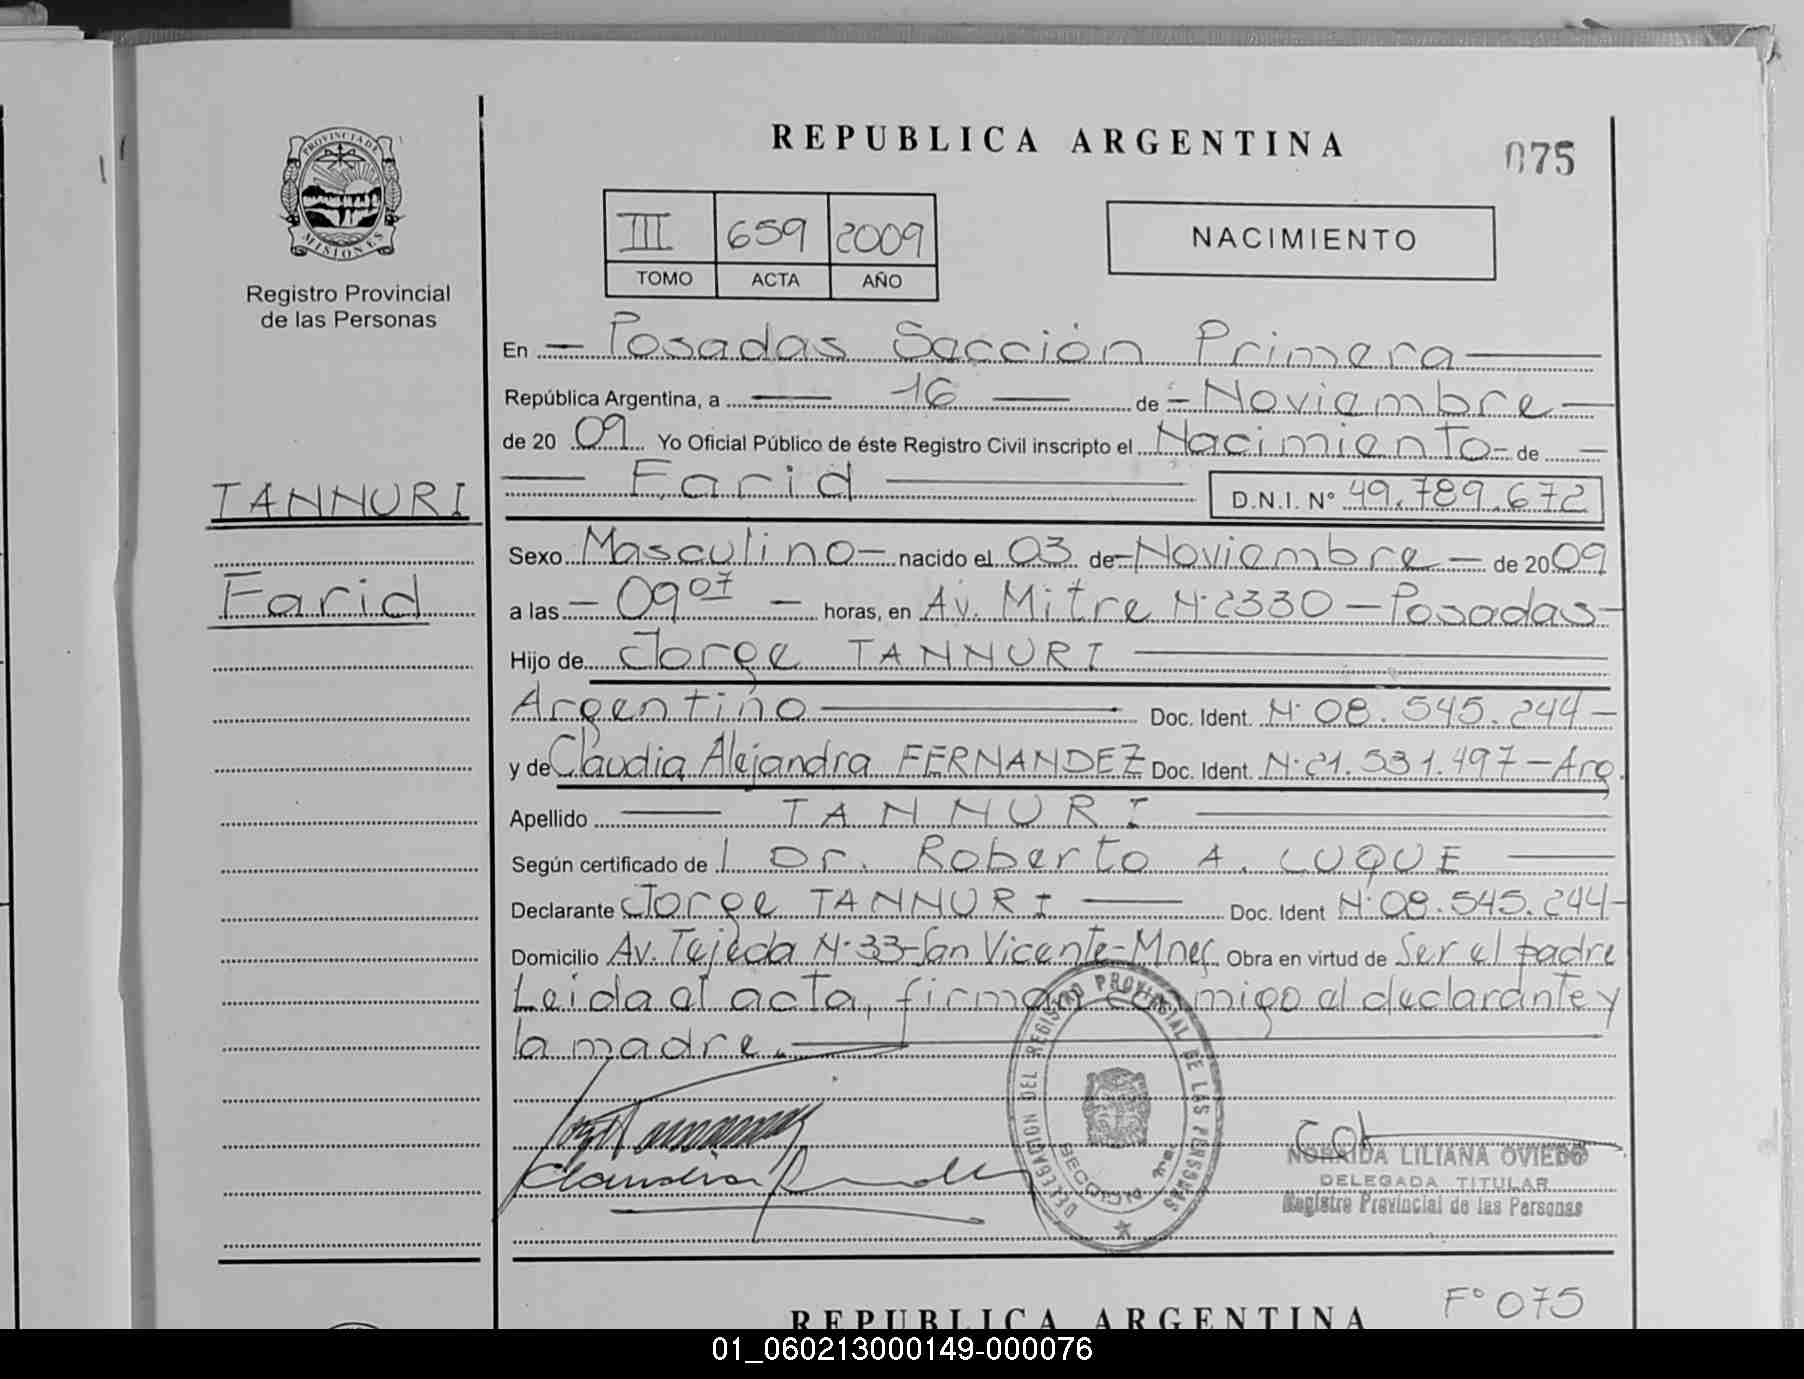 REPUBLICA ARGENTINA
075
PROVINCIA DE
MISIONES
Registro Provincial
de las Personas
III 659 2009
TOMO ACTA AÑO
NACIMIENTO
En Posadas Sección Primera
República Argentina, a 16 de Noviembre
de 2009 Yo Oficial Público de éste Registro Civil inscripto el Nacimiento de
Farid D.N.I. N° 49.789.672
TANNURI
Farid
Sexo Masculino nacido el 03 de Noviembre de 2009
a las 09 07 horas, en Av. Mitre N° 2330 - Posadas
Hijo de Jorge TANNURI
Argentino Doc. Ident. N° 08.545.244
y de Claudia Alejandra FERNANDEZ Doc. Ident. N° 21.531.497 - Arg.
Apellido TANNURI
Según certificado de l Dr. Roberto A. LUQUE
Declarante Jorge TANNURI Doc. Ident N° 08.545.244
Domicilio Av. Tejeda N° 33 - San Vicente - Mnes Obra en virtud de Ser el padre
Leida el acta, firman conmigo el declarante y
la madre.
DELEGACION DEL REGISTRO PROVINCIAL DE LAS PERSONAS
SECCION 1ra.
Claudia
NORAIDA LILIANA OVIEDO
DELEGADA TITULAR
Registro Provincial de las Personas
F° 075
REPUBLICA ARGENTINA
01_060213000149-000076